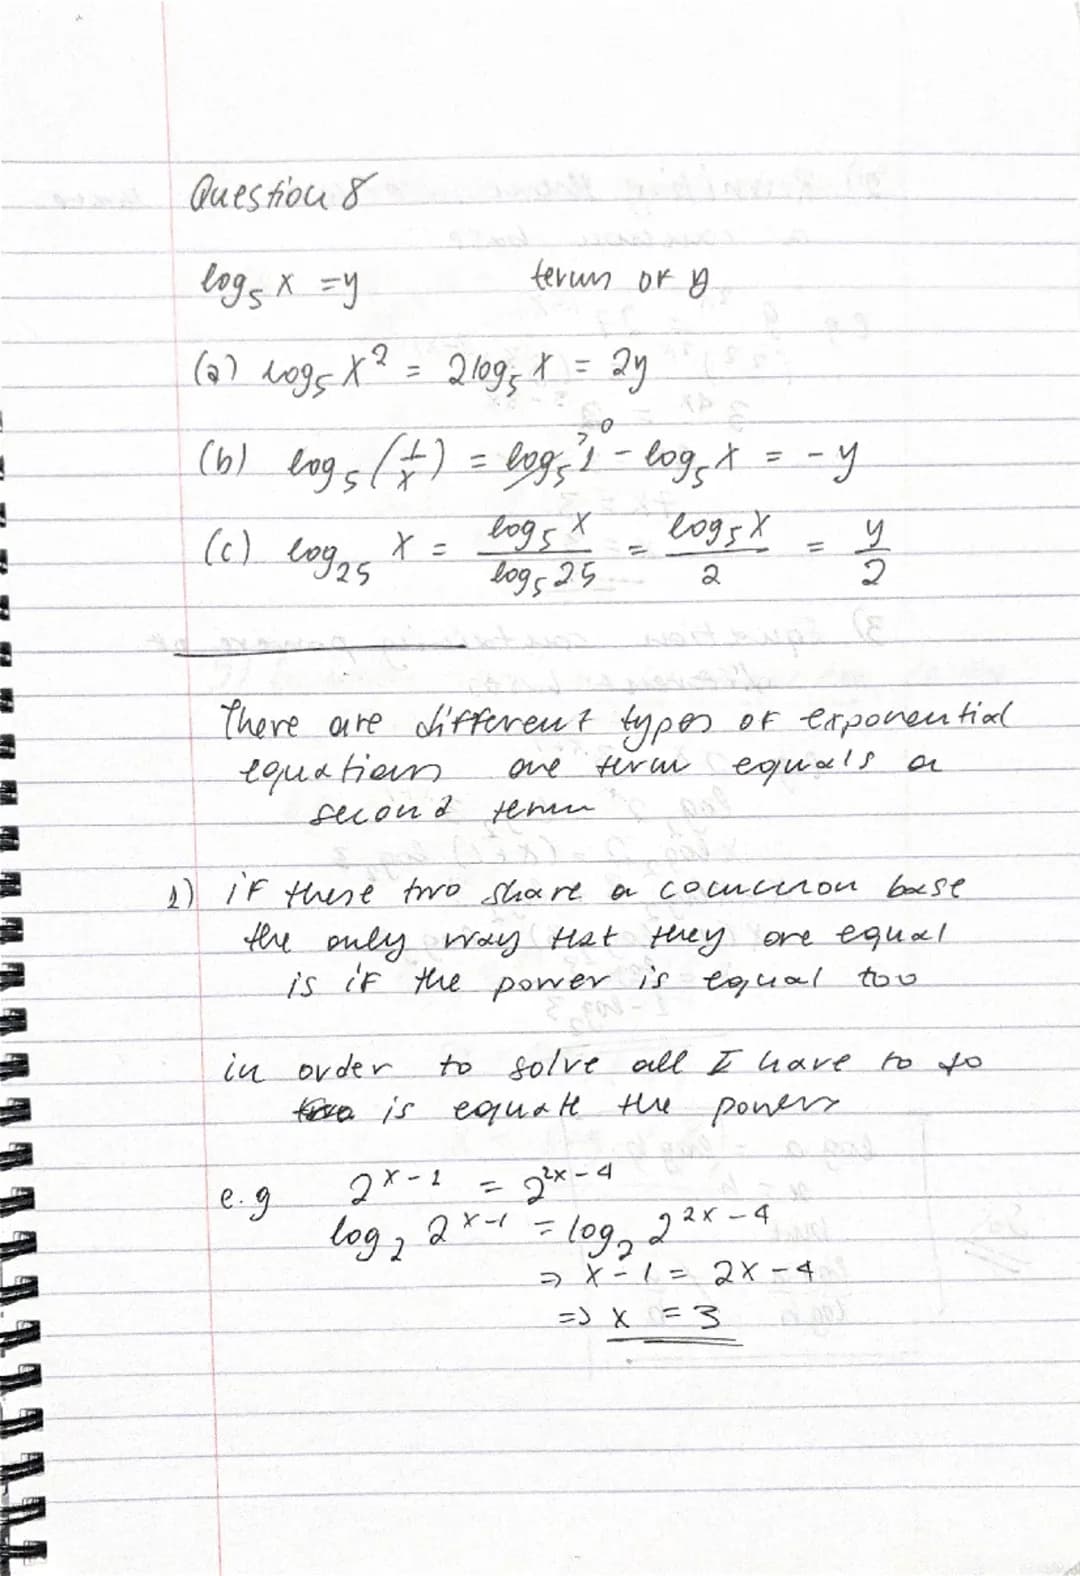 Question 8
log₅ x = y terms of y
(a) log₅ x² = 2log₅ x = 2y
(b) log₅ (1/x) = log₅ 1 → 0 - log₅ x = - y
(c) log₂₅ x = log₅ x / log₅ 25 = log₅ x / 2 = y / 2
There are different types of exponential
equations one term equals a
second term
1) if these two share a common base
the only way that they are equal
is if the power is equal too
in order to solve all I have to do
is equate the powers
e.g 2^(x-1) = 2^(2x-4)
log₂ 2^(x-1) = log₂ 2^(2x-4)
=> x - 1 = 2x - 4
=> x = 3